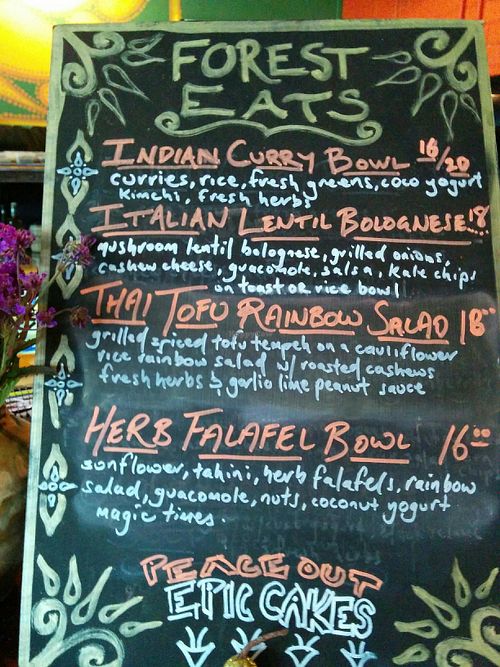 FOREST
EATS
INDIAN CURRY BOWL 16/20
curries, rice, fresh greens, coco yogurt
kimchi, fresh herbs
ITALIAN LENTIL BOLOGNESE 18
mushroom lentil bolognese, grilled onions,
cashew cheese, guacomole, salsa, kale chips
on toast or rice bowl
THAI TOFU RAINBOW SALAD 18
grilled spiced tofu tempeh on a cauliflower
rice rainbow salad w/ roasted cashews
fresh herbs & garlic lime peanut sauce
HERB FALAFEL BOWL 16.00
sonflower, tahini, herb falafels, rainbow
salad, guacomole, nuts, coconut yogurt
magic times.
PEACE OUT
EPIC CAKES